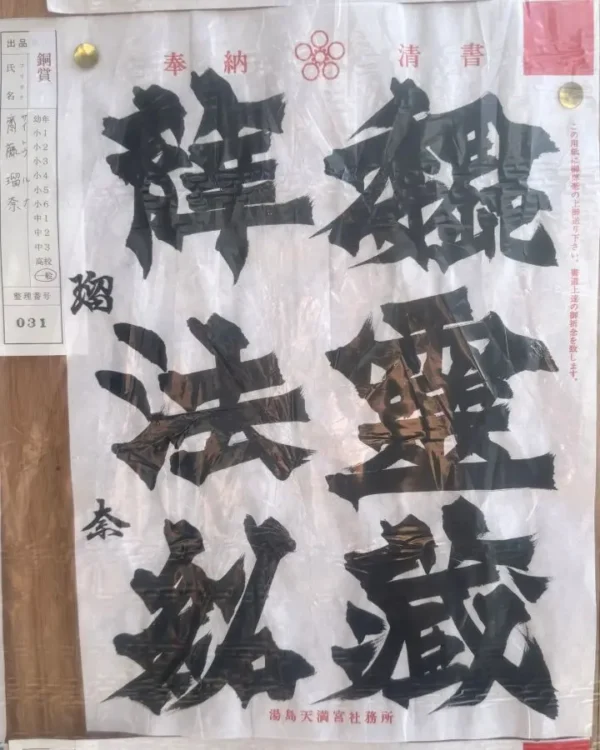 奉納 清書
この用紙に御清書の上御送り下さい。書道上達の御祈念を致します。
靈蔵
法
瑠奈
湯島天満宮社務所
銅賞
出品
フリガナ
氏名
サイトウ ルナ
齊藤 瑠奈
幼年
小1
小2
小3
小4
小5
小6
中1
中2
中3
高校
一般
整理番号
031